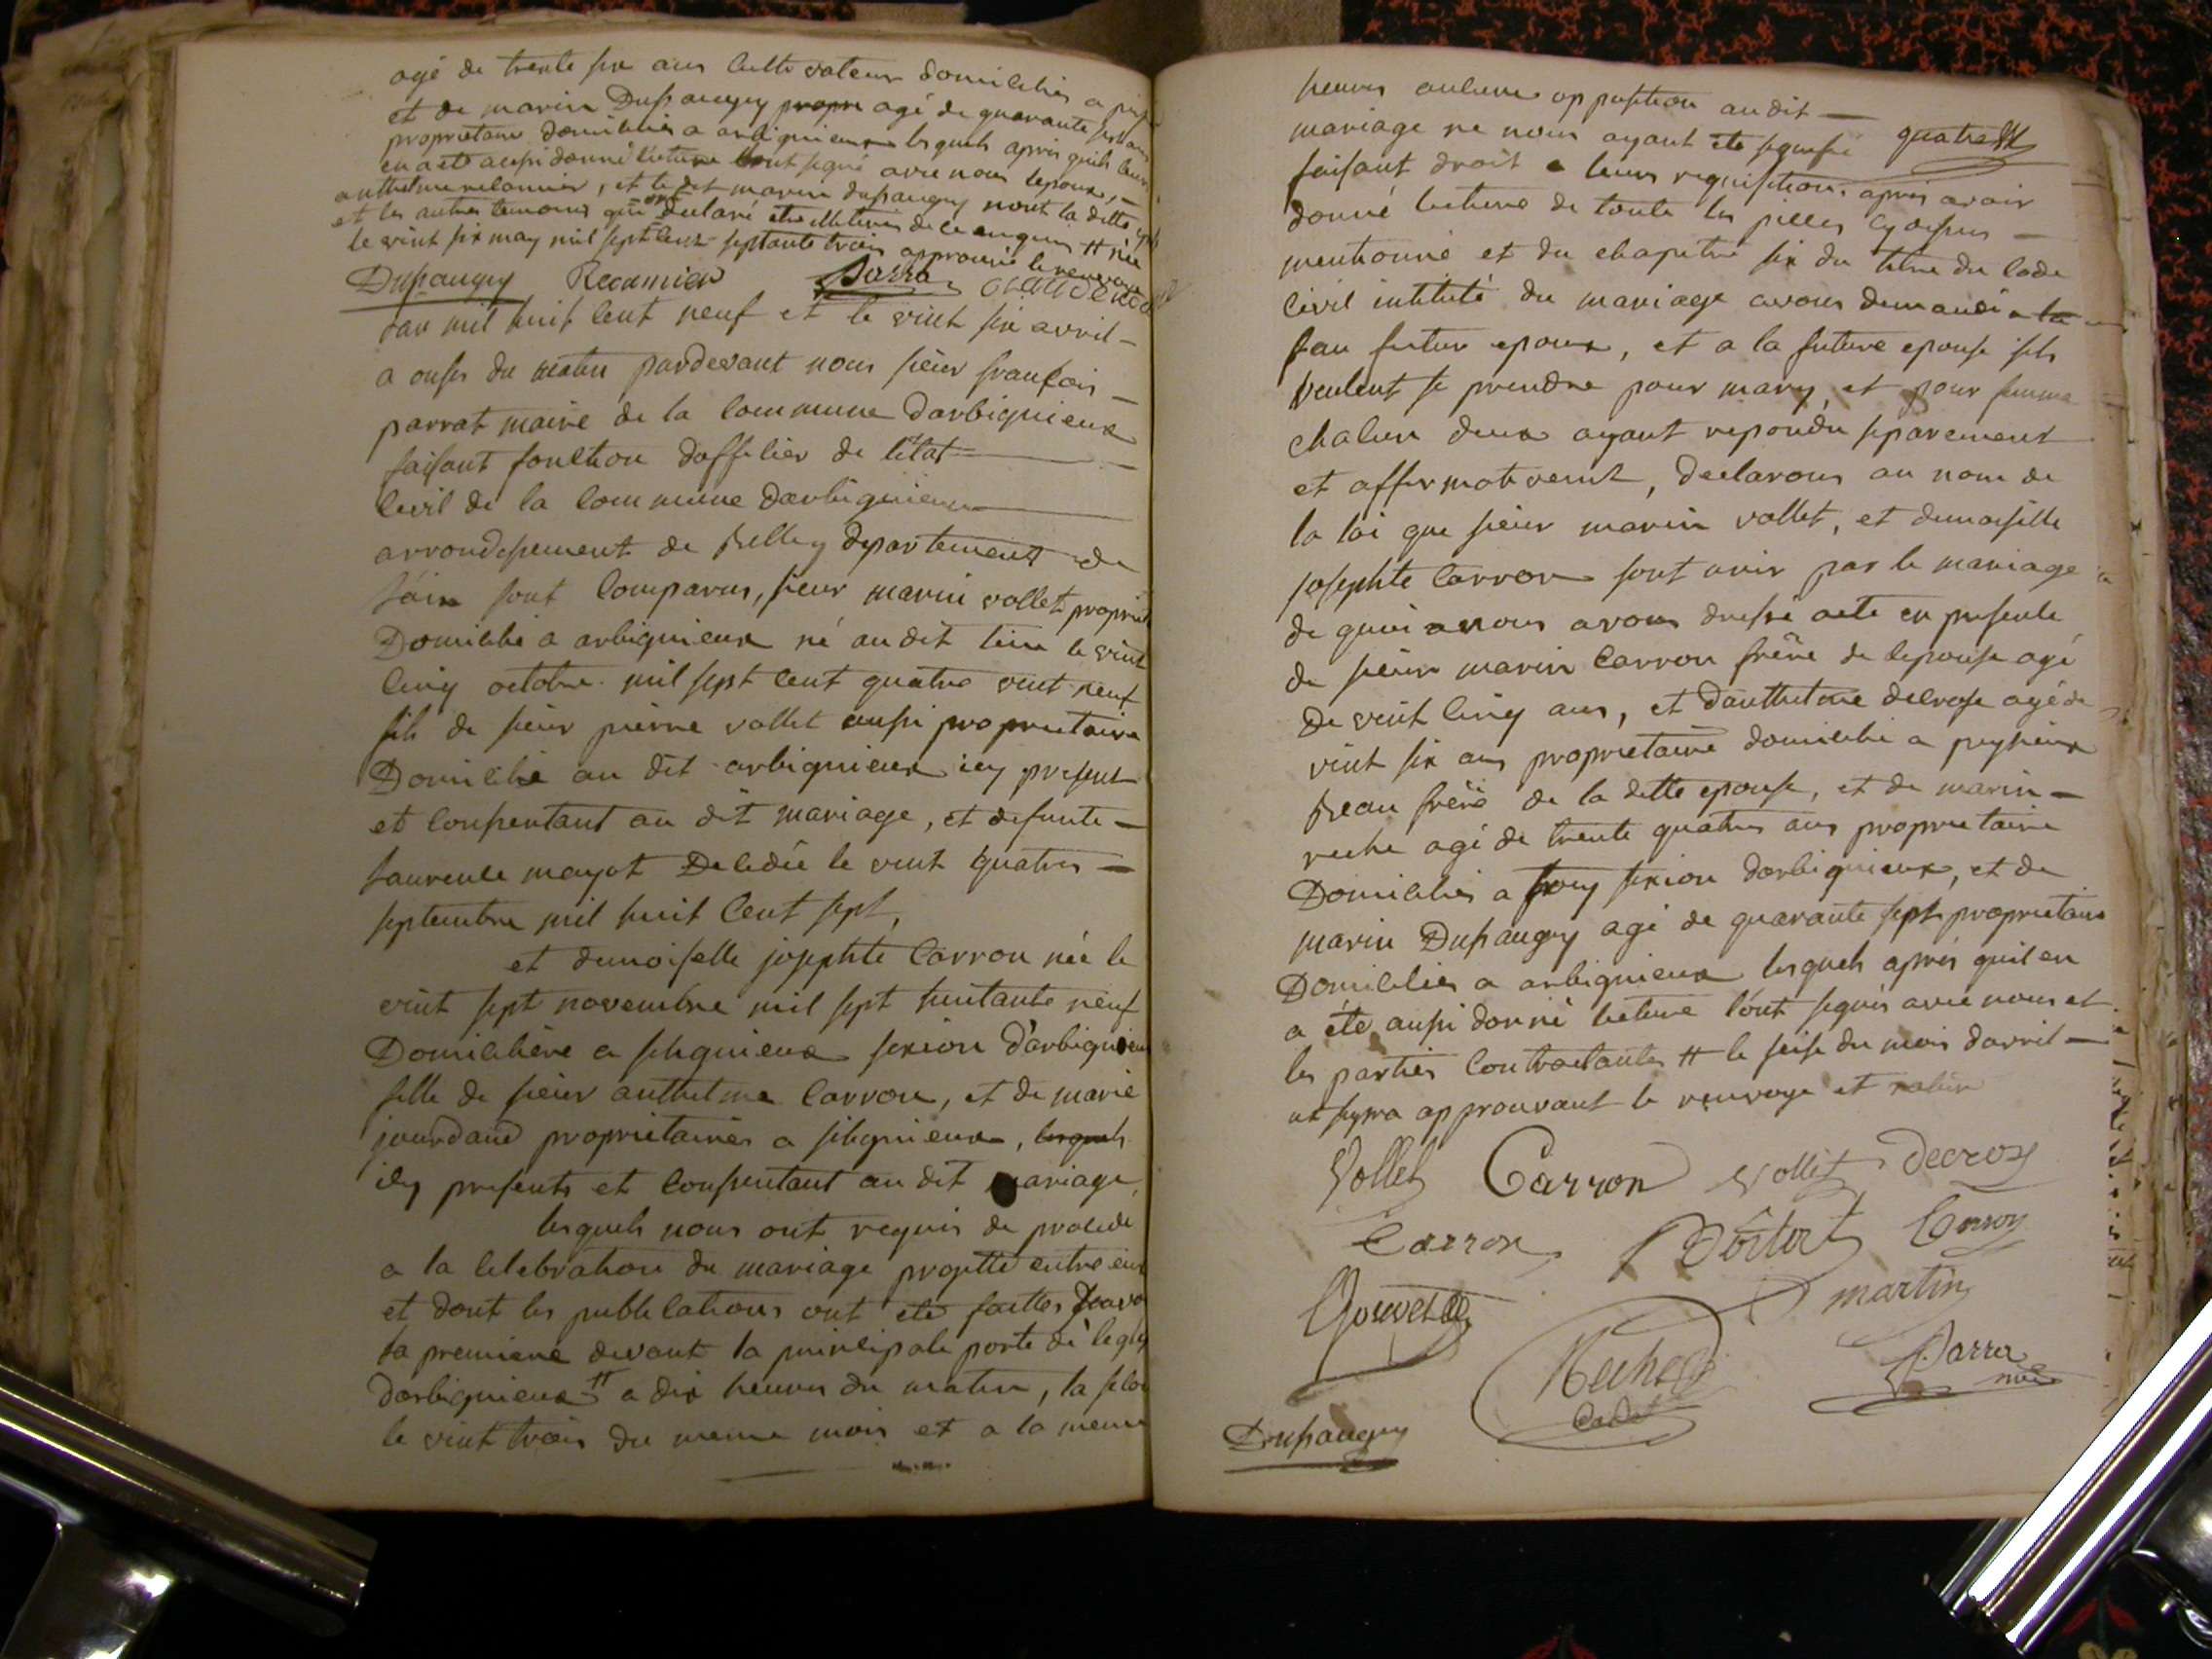 agé de trente six ans cultivateur domicilié a
et de marin Dupaugey propre agé de quarante sept ans
proprietaire domicilié a arbignieux lesquels apres quils leur
en a eté aussi donné lecture l'ont signé avec nous lepoux, –
anthelme recamier, et le dit marin dupaugey nont la ditte
et les autres temoins qui ont declaré etre illiterés de ce enquis # née
le vint six may mil sept cent septante trois approuvé le renvoy
Dupaugey Recamier Parra
Lan mil huit cent neuf et le vint six avril –
a onses du matin pardevant nous sieur francois –
parrat maire de la commune Darbignieux
faisant fonction dofficier de l'etat
Civil de la commune darbignieux
arrondissement de Belley departement de
l'ain sont comparus, sieur marin vollet propriet
Domicilié a arbignieux né au dit lieu le vint
cinq octobre mil sept cent quatre vint neuf
fils de sieur pierre vollet aussi proprietaire
Domicilié au dit arbignieux icy present
et consentant au dit mariage, et defunte –
Laurence mayot Decedée le vint quatres –
septembre mil huit Cent sept,
et demoiselle josephte Carron née le
vint sept novembre mil sept huitante neuf
Domicilière a silignieux sexion d'arbignieux
fille de sieur anthelme Carron, et de marie
jourdand proprietaires a silignieux, lesquels
icy presents et consentant au dit mariage,
lesquels nous ont requis de proceder
a la celebration du mariage projetté entre eux
et dont les publications ont eté faittes
la premiere devant la principale porte de l'eg
darbignieux # a dix heures du matin, la
le vint trois du meme mois et a la meme
heures aucune opposition au dit –
mariage ne nous ayant eté signifié quatre
faisant droit a leurs requisitions apres avoir
donné lecture de toute les pieces cy dessus –
mentionné et du chapitre six du titre du Code
Civil intitulé du mariage avons demandé a la
sau futur epoux, et a la future epouse sils
veulent se prendre pour mary, et pour femme
chalun deux ayant repondu separement
et affirmativement, Declarons au nom de
la loi que sieur marin vollet, et demoiselle
josephte Carron sont unir par le mariage
de quoi a nous avons dressé acte en presence
de sieur marin Carron frère de lepouse agé
de vint cinq ans, et danthelme decrose agé de
vint six ans proprietaire domicilié a peyzieux
Beau frère de la ditte epouse, et de marin –
reche agé de trente quatres ans proprietaire
Domicilié a sexion darbignieux, et de
marin Dupaugey agé de quarante sept proprietaire
Domicilié a arbignieux lesquels après quil en
a été aussi donné lecture l'ont signés avec nous et
les parties Contractantes # le seise du mois davril –
approuvant le renvoye et
Vollet Carron Vollet Decroze
Carron Carron
martin
Reche Parra
Cadet
Dupaugey